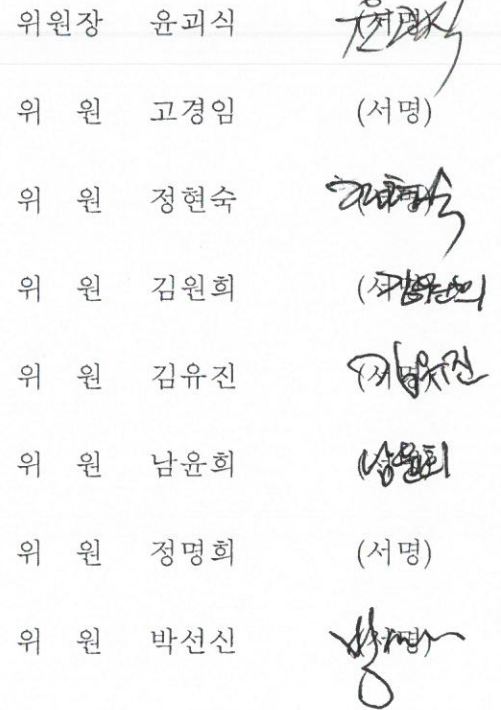 위원장 윤괴식 (서명)
위 원 고경임 (서명)
위 원 정현숙 (서명)
위 원 김원희 (서명)
위 원 김유진 (서명)
위 원 남윤희 (서명)
위 원 정명희 (서명)
위 원 박선신 (서명)